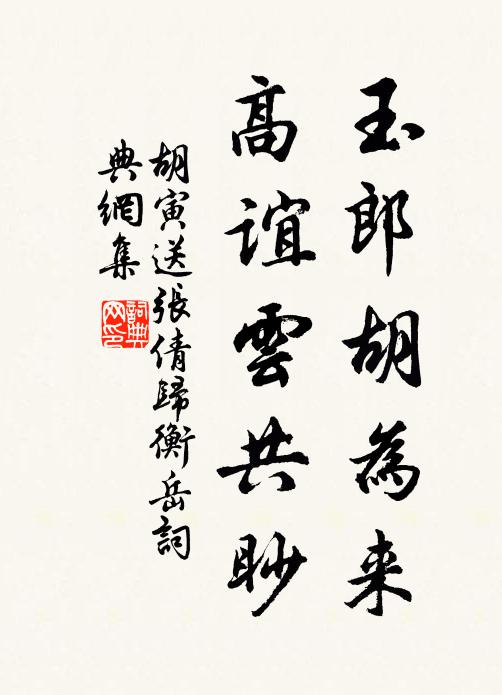 玉郎胡為来
高誼雲共眇
胡寅送張倩歸衡岳詞
典網集
詞典網印